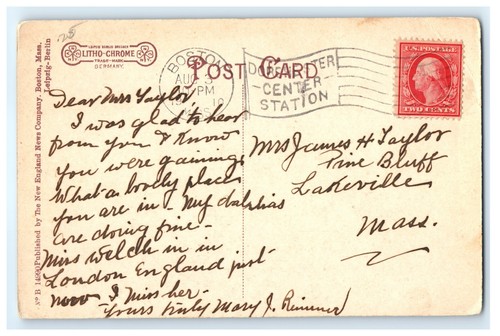 25
LITHO-CHROME
TRADE-MARK
GERMANY.
POST CARD.
BOSTON
AUG
PM
MASS
CENTER
STATION
U.S. POSTAGE
TWO CENTS
Nº B 14960 Published by The New England News Company, Boston, Mass.
Leipzig-Berlin
Dear Mrs Taylor,
I was glad to hear
from you & know
you were gaining
What a lovely place
you are in - My dahlias
are doing fine -
Miss Welch in in
London England just
now I miss her -
Yours truly Mary J. Rimmer
Mrs James H Taylor
Pine Bluff
Lakeville
Mass.